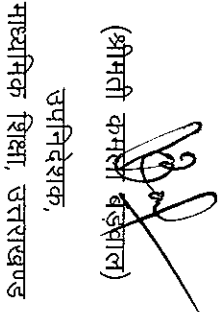 (श्रीमती कमला बड़वाल)
उपनिदेशक,
माध्यमिक शिक्षा, उत्तराखण्ड